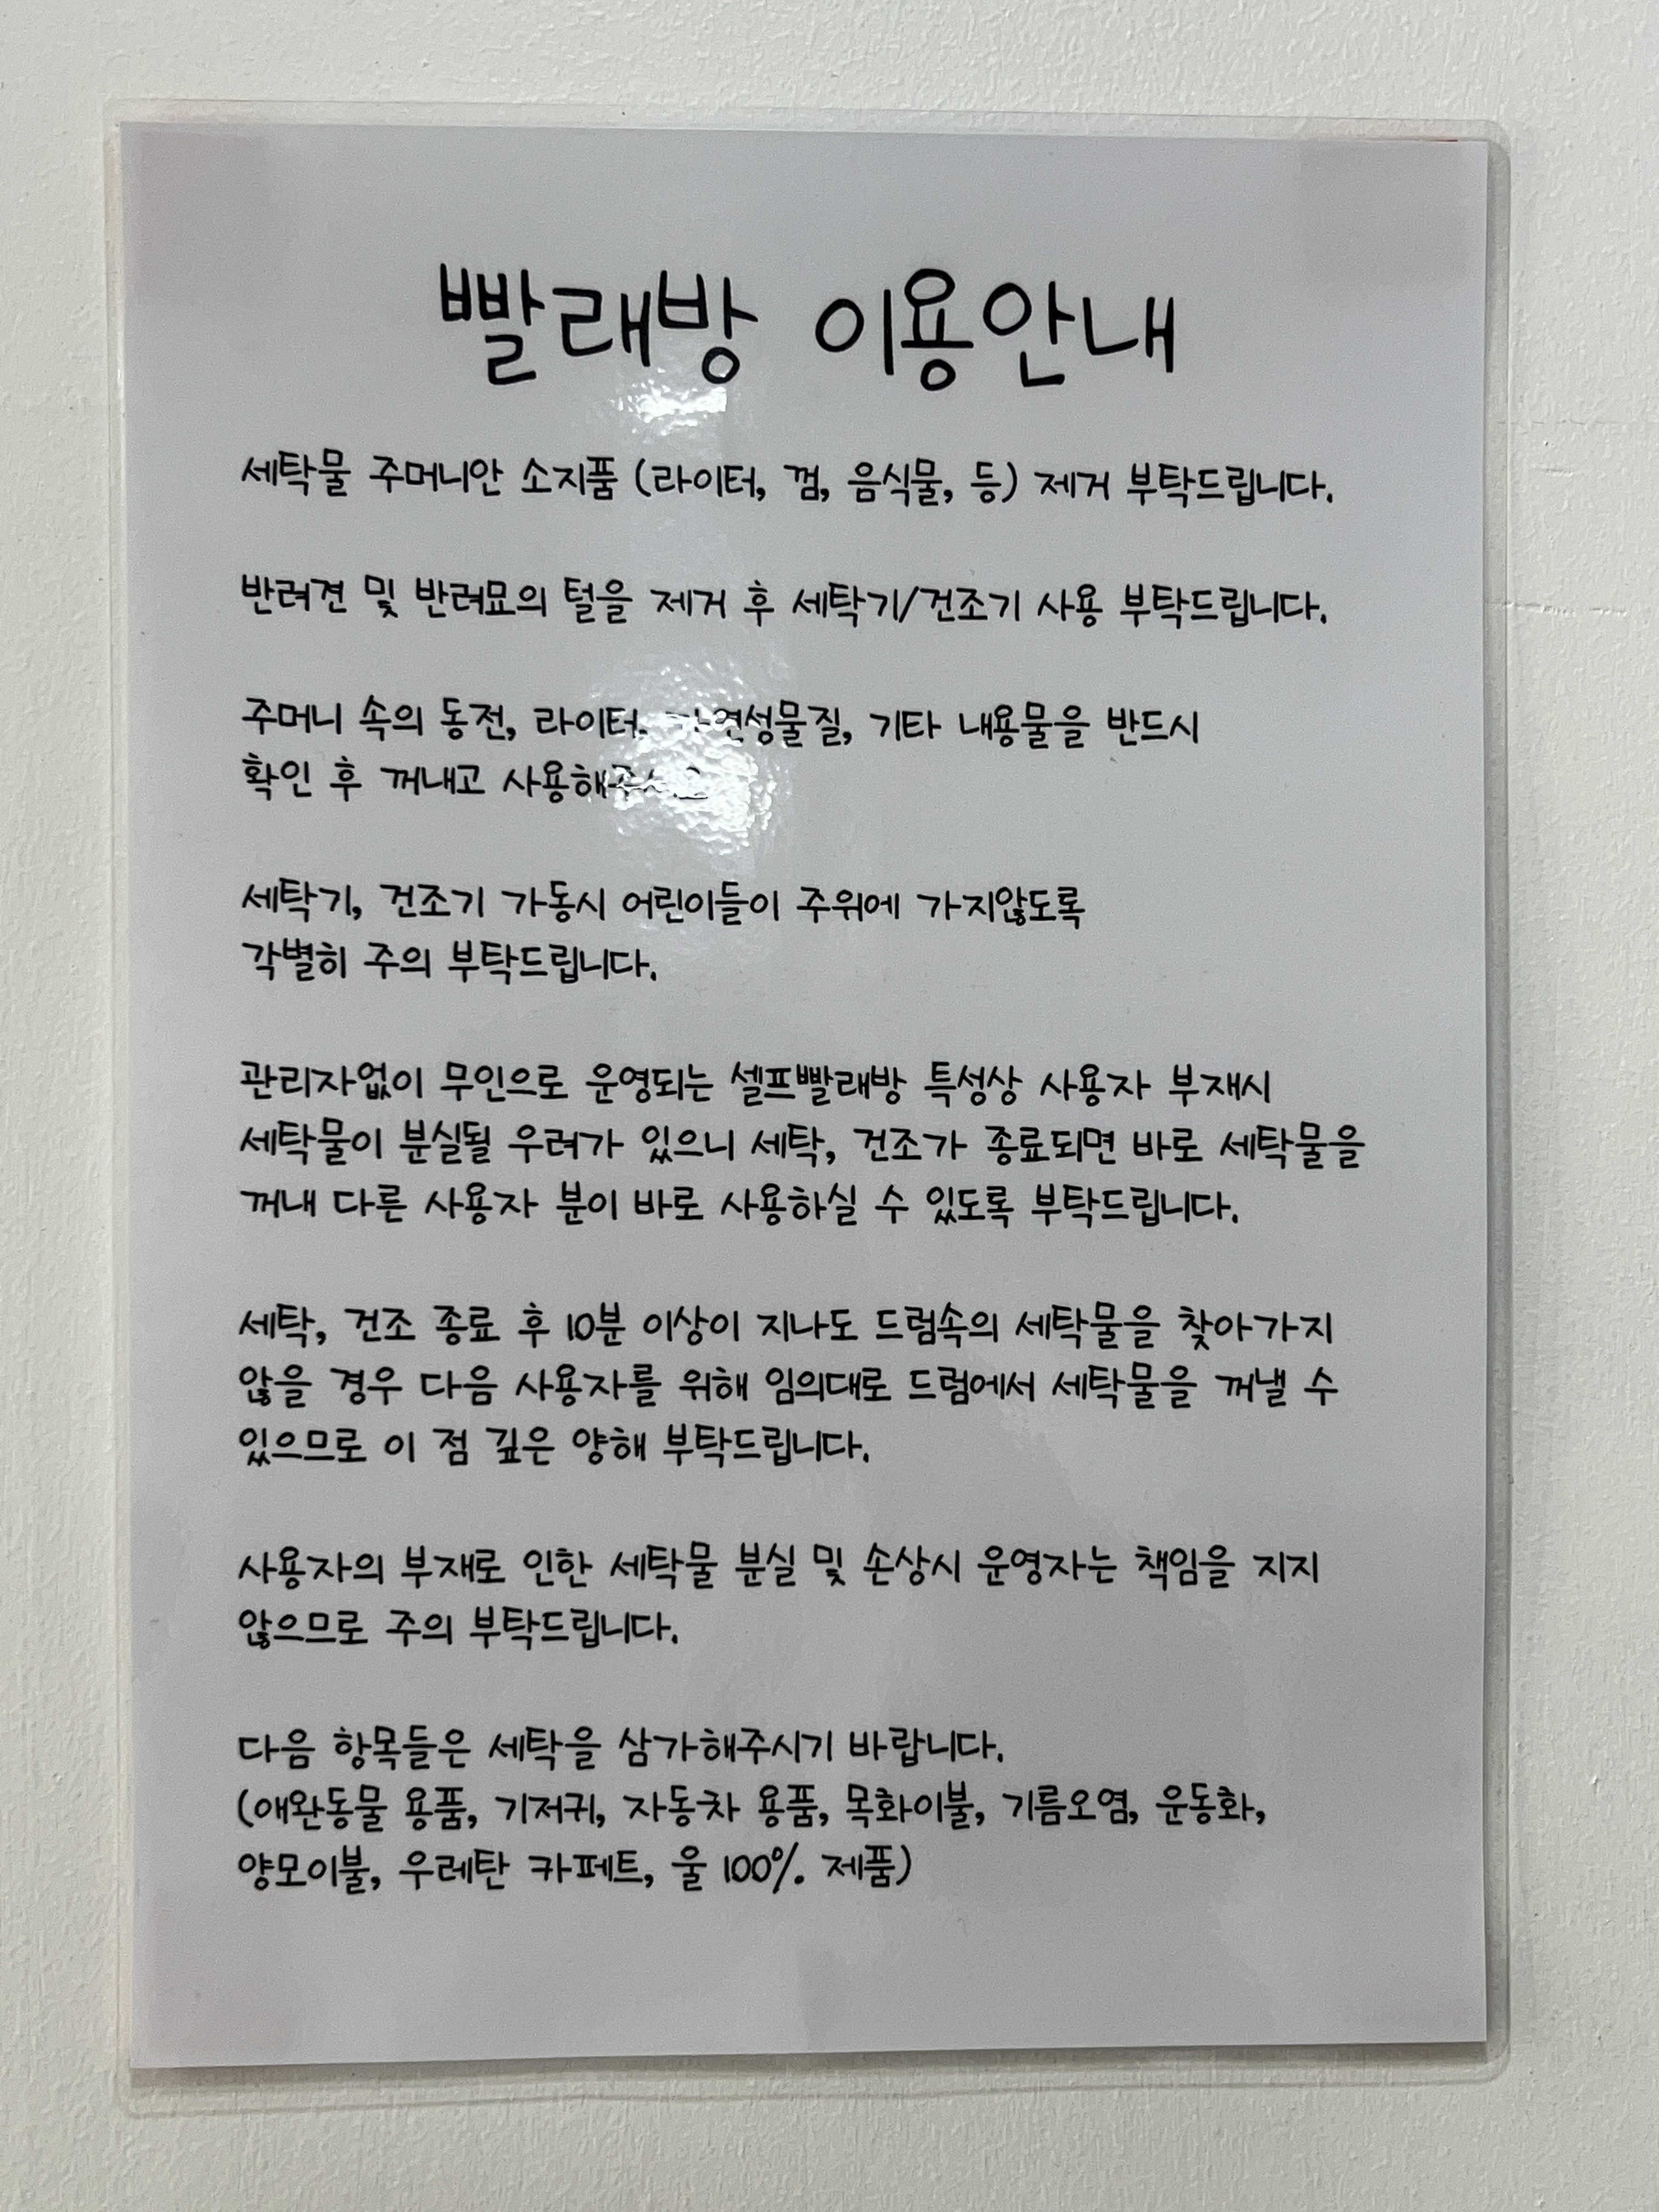 빨래방 이용안내
세탁물 주머니안 소지품 (라이터, 껌, 음식물, 등) 제거 부탁드립니다.
반려견 및 반려묘의 털을 제거 후 세탁기/건조기 사용 부탁드립니다.
주머니 속의 동전, 라이터, 가연성물질, 기타 내용물을 반드시
확인 후 꺼내고 사용해주시오
세탁기, 건조기 가동시 어린이들이 주위에 가지않도록
각별히 주의 부탁드립니다.
관리자없이 무인으로 운영되는 셀프빨래방 특성상 사용자 부재시
세탁물이 분실될 우려가 있으니 세탁, 건조가 종료되면 바로 세탁물을
꺼내 다른 사용자 분이 바로 사용하실 수 있도록 부탁드립니다.
세탁, 건조 종료 후 10분 이상이 지나도 드럼속의 세탁물을 찾아가지
않을 경우 다음 사용자를 위해 임의대로 드럼에서 세탁물을 꺼낼 수
있으므로 이 점 깊은 양해 부탁드립니다.
사용자의 부재로 인한 세탁물 분실 및 손상시 운영자는 책임을 지지
않으므로 주의 부탁드립니다.
다음 항목들은 세탁을 삼가해주시기 바랍니다.
(애완동물 용품, 기저귀, 자동차 용품, 목화이불, 기름오염, 운동화,
양모이불, 우레탄 카페트, 울 100% 제품)